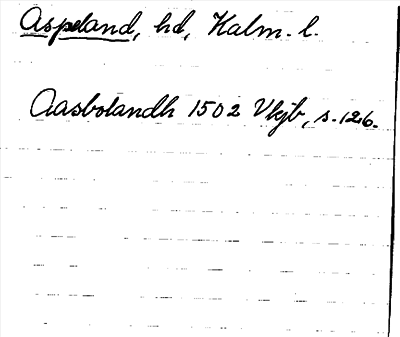 Aspeland, hd, Kalm. l.
Aasbolandh 1502 Vkjb, s. 126.